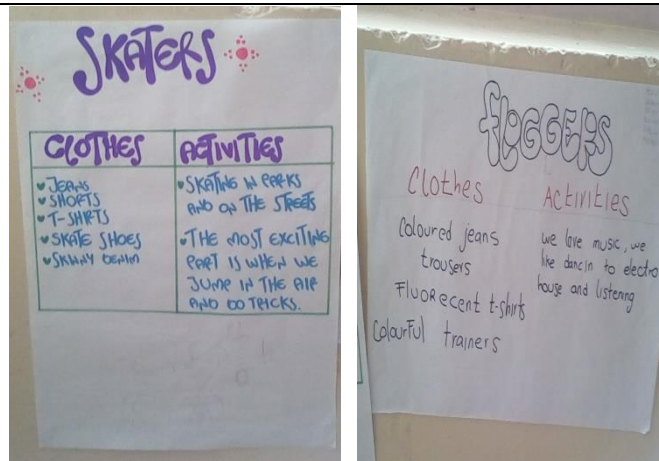 SKATERS
CLOTHES
JEANS
SHORTS
T-SHIRTS
SKATE SHOES
SKINNY DENIM
ACTIVITIES
SKATING IN PARKS
AND ON THE STREETS
THE MOST EXCITING
PART IS WHEN WE
JUMP IN THE AIR
AND DO TRICKS.
floGGERS
Clothes
Coloured jeans
trousers
Fluorecent t-shirts
Colourful trainers
Activities
we love music, we
like dancin to electro
house and listening